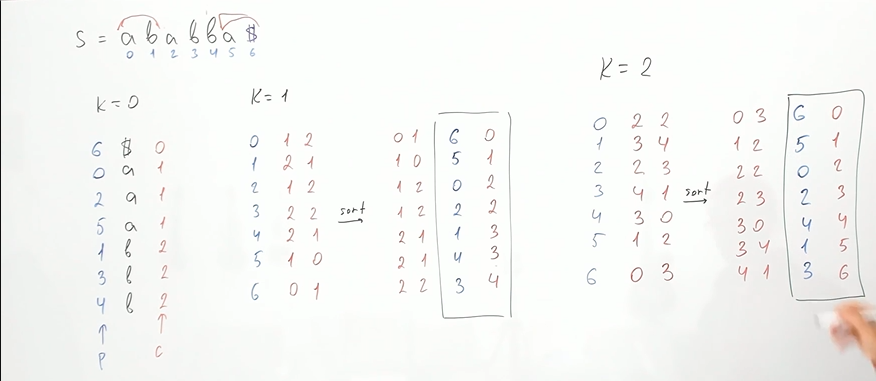 S = a b a b b a $
0 1 2 3 4 5 6
K = 0
6 $ 0
0 a 1
2 a 1
5 a 1
1 b 2
3 b 2
4 b 2
↑ ↑
p c
K = 1
0 1 2
1 2 1
2 1 2
3 2 2
4 2 1
5 1 0
6 0 1
sort →
0 1 6 0
1 0 5 1
1 2 0 2
1 2 2 2
2 1 1 3
2 1 4 3
2 2 3 4
K = 2
0 2 2
1 3 4
2 2 3
3 4 1
4 3 0
5 1 2
6 0 3
sort →
0 3 6 0
1 2 5 1
2 2 0 2
2 3 2 3
3 0 4 4
3 4 1 5
4 1 3 6